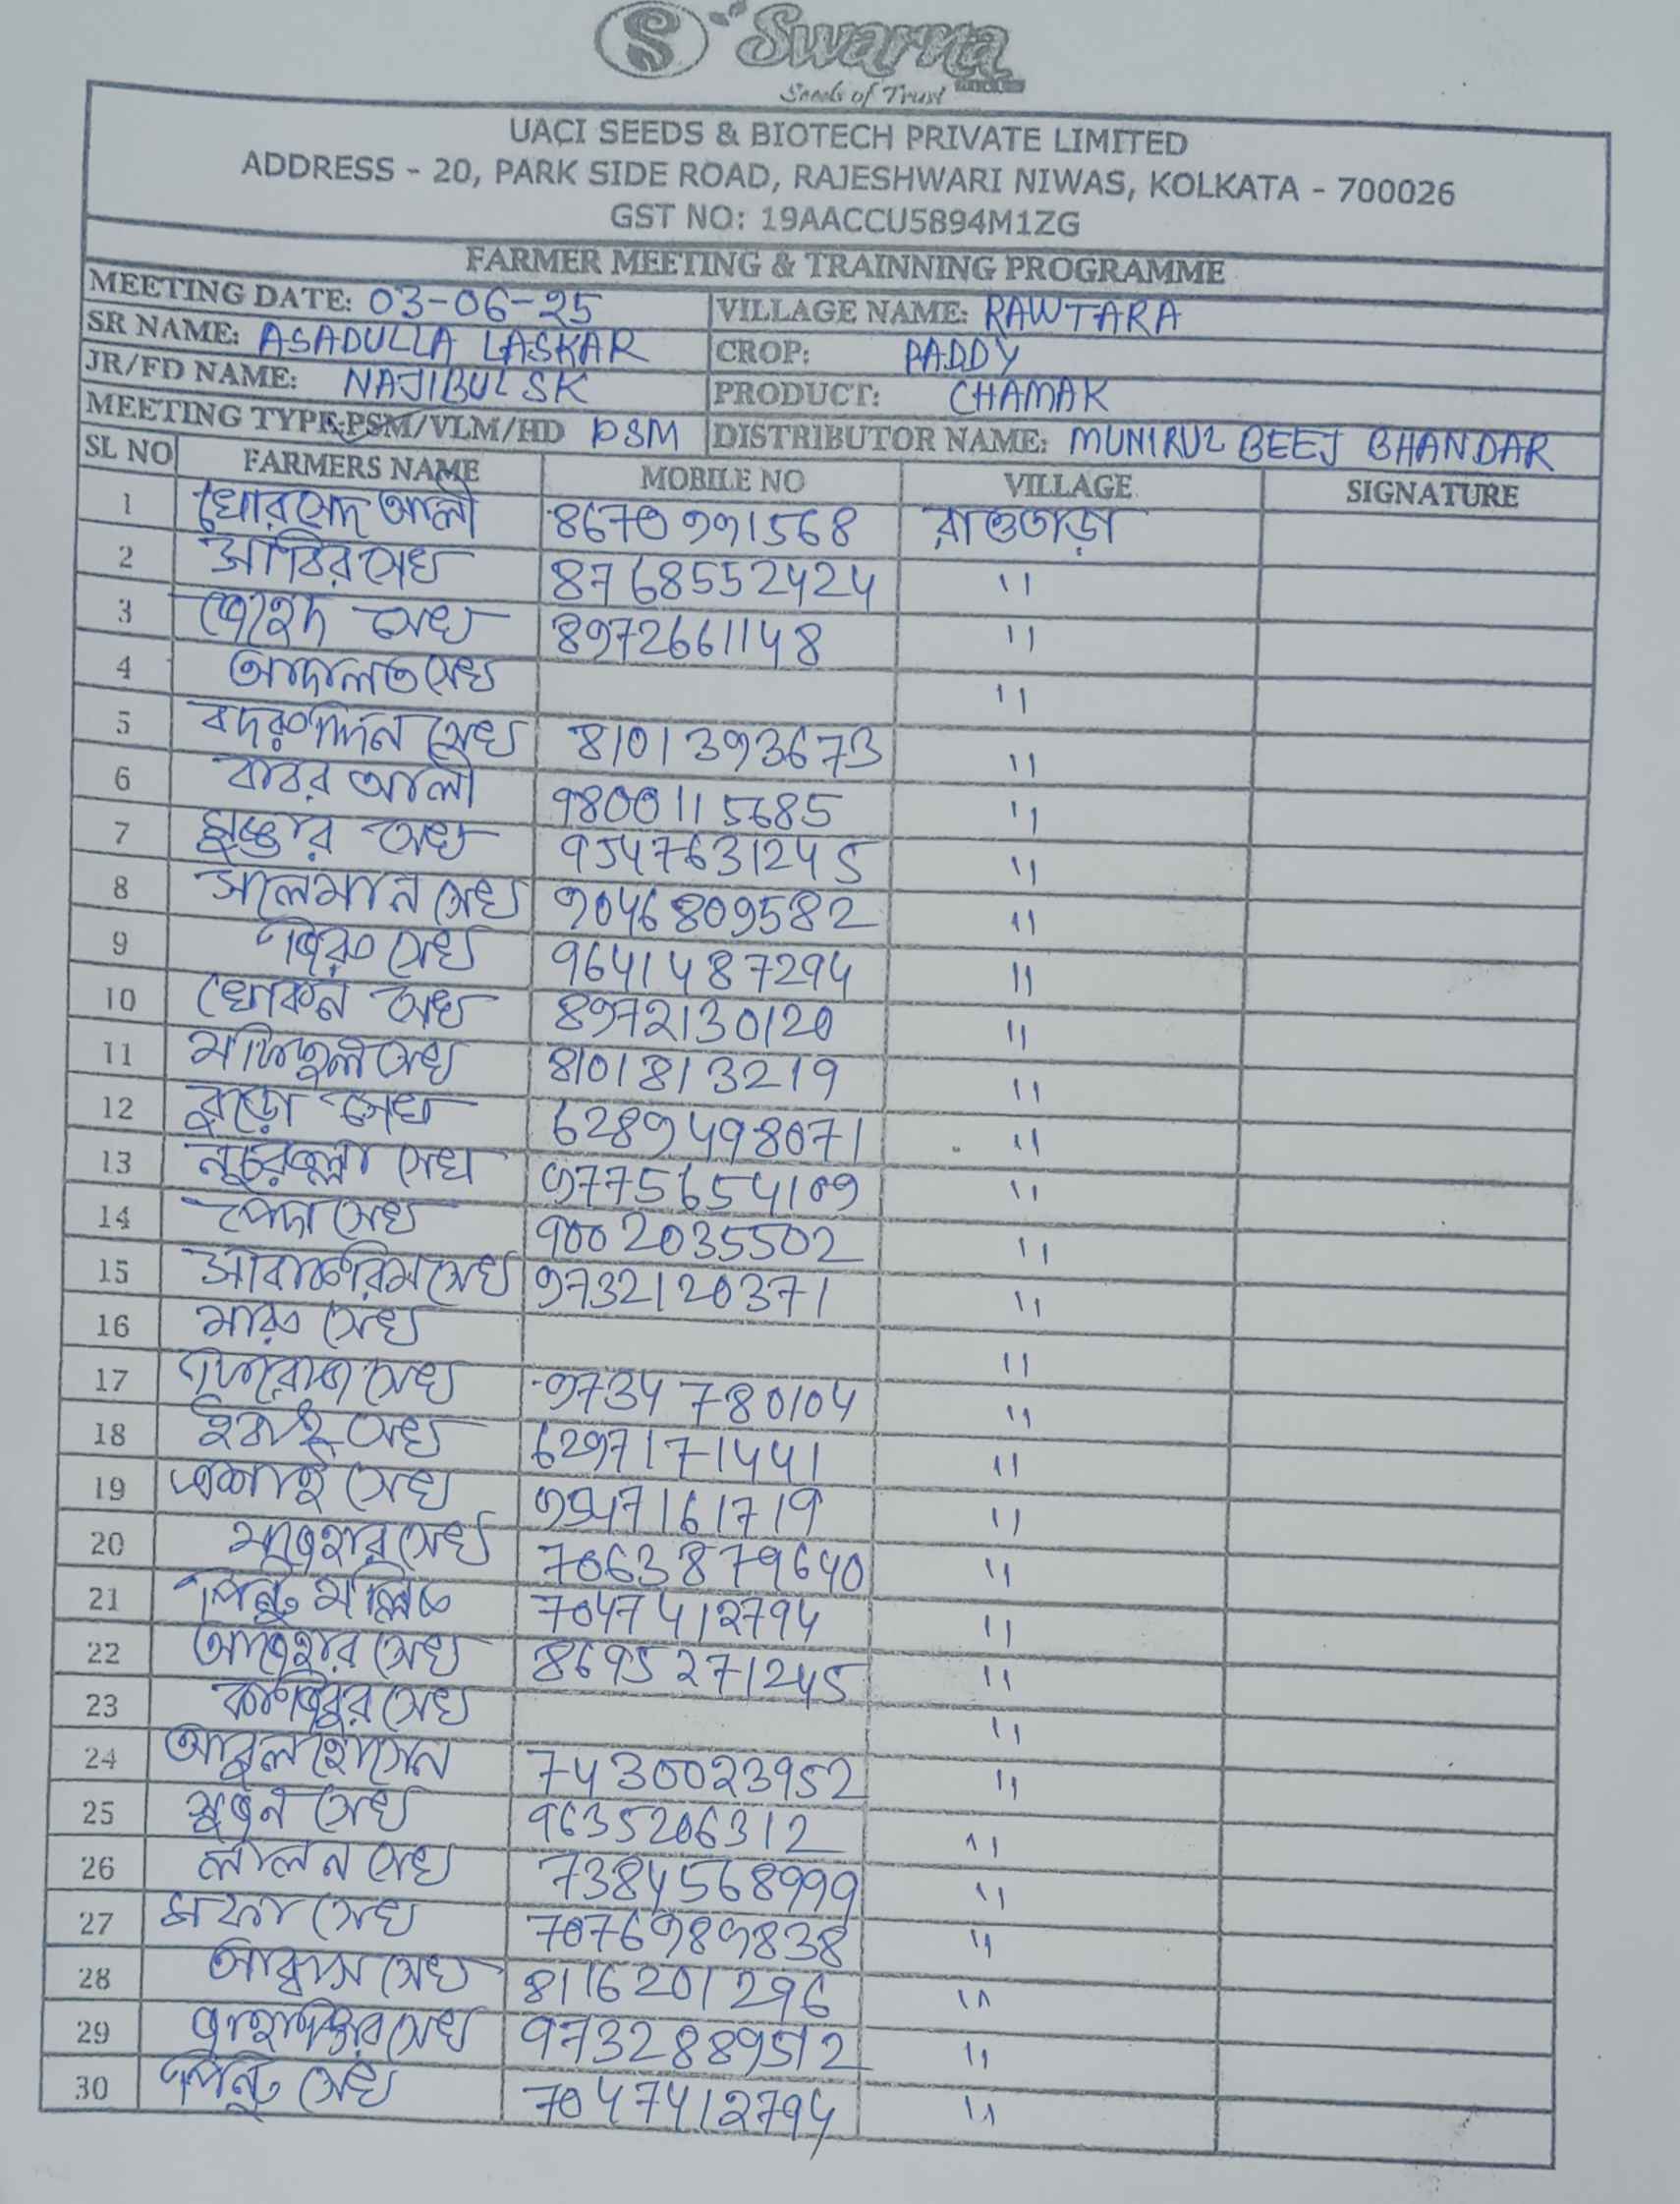 S Swarna
Seeds of Trust
UACI SEEDS & BIOTECH PRIVATE LIMITED
ADDRESS - 20, PARK SIDE ROAD, RAJESHWARI NIWAS, KOLKATA - 700026
GST NO: 19AACCU5894M1ZG
FARMER MEETING & TRAINNING PROGRAMME
MEETING DATE: 03-06-25 VILLAGE NAME: RAWTARA
SR NAME: ASADULLA LASKAR CROP: PADDY
JR/FD NAME: NAJIBUL SK PRODUCT: CHAMAK
MEETING TYPE-PSM/VLM/HD PSM DISTRIBUTOR NAME: MUNIRUL BEEJ BHANDAR
SL NO FARMERS NAME MOBILE NO VILLAGE SIGNATURE
1 খোরসেদ আলী 8670991568 রাওতাড়া
2 সাবির সেখ 8768552424 "
3 সেখ 8972661148 "
4 আদালত সেখ "
5 বদরুদ্দিন সেখ 8101393673 "
6 বাবর আলী 9800115685 "
7 মুক্তার সেখ 9547631245 "
8 সালেমান সেখ 9046809582 "
9 সেখ 9641487294 "
10 খোকন সেখ 8972130120 "
11 মফিজুল সেখ 8101813219 "
12 বুড়ো সেখ 6289498071 "
13 সেখ 9775654109 "
14 সেখ 9002035502 "
15 সেখ 9732120371 "
16 সেখ "
17 ফিরোজ সেখ 9734780104 "
18 সেখ 6297171441 "
19 সেখ 9547161719 "
20 সেখ 7063879640 "
21 পিন্টু মল্লিক 7047412794 "
22 আজহার সেখ 8695271245 "
23 সেখ "
24 আবুল হোসেন 7430023952 "
25 সুজন সেখ 9635206312 "
26 লালন সেখ 7384568999 "
27 সেখ 7076989838 "
28 আব্বাস সেখ 8116201296 "
29 জাহাঙ্গীর সেখ 9732889512 "
30 পিন্টু সেখ 7047412794 "